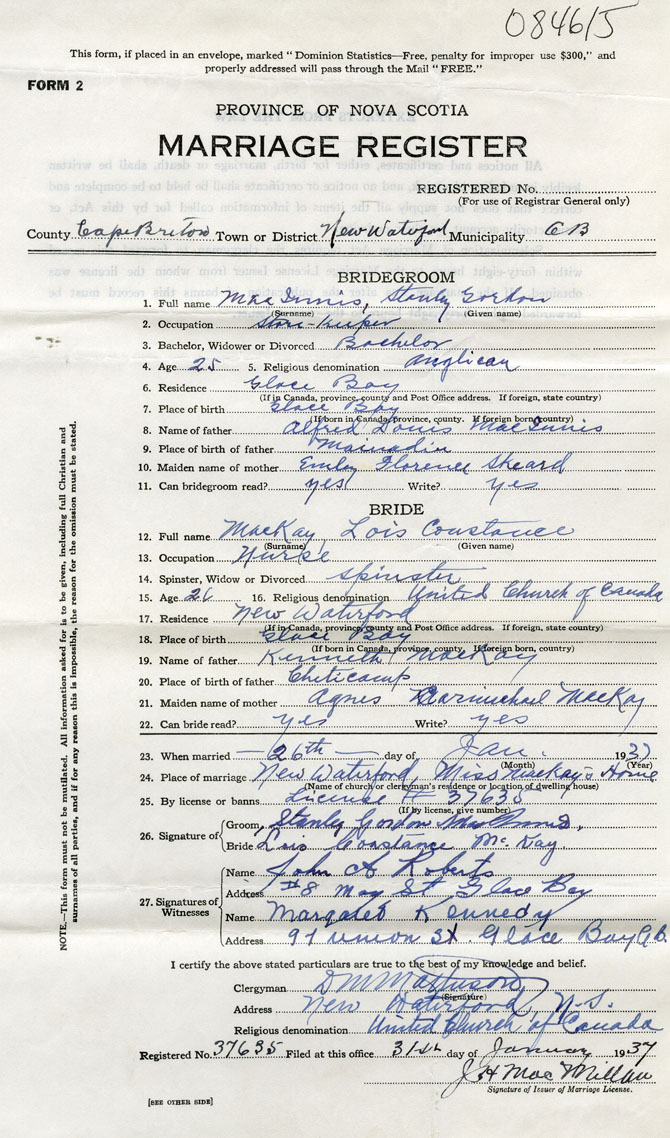 084615
This form, if placed in an envelope, marked "Dominion Statistics—Free, penalty for improper use $300," and
properly addressed will pass through the Mail "FREE."
FORM 2
PROVINCE OF NOVA SCOTIA
MARRIAGE REGISTER
REGISTERED No.
(For use of Registrar General only)
County Cape Breton Town or District New Waterford Municipality C B
BRIDEGROOM
1. Full name MacInnis, Stanley Gordon
(Surname) (Given name)
2. Occupation Store-keeper
3. Bachelor, Widower or Divorced Bachelor
4. Age 25 5. Religious denomination Anglican
6. Residence Glace Bay
(If in Canada, province, county and Post Office address. If foreign, state country)
7. Place of birth Glace Bay
(If born in Canada, province, county. If foreign born, country)
8. Name of father Alfred Louis MacInnis
9. Place of birth of father Mainadieu
10. Maiden name of mother Emley Florence Sheard
11. Can bridegroom read? yes Write? yes
BRIDE
12. Full name MacKay, Lois Constance
(Surname) (Given name)
13. Occupation Nurse
14. Spinster, Widow or Divorced Spinster
15. Age 26 16. Religious denomination United Church of Canada
17. Residence New Waterford
(If in Canada, province, county and Post Office address. If foreign, state country)
18. Place of birth Glace Bay
(If born in Canada, province, county. If foreign born, country)
19. Name of father Kenneth MacKay
20. Place of birth of father Cheticamp
21. Maiden name of mother Agnes Carmichael MacKay
22. Can bride read? yes Write? yes
23. When married 26th day of Jan. 1937
(Month) (Year)
24. Place of marriage New Waterford, Miss MacKay's Home
(Name of church or clergyman's residence or location of dwelling house)
25. By license or banns License # 37635
(If by license, give number)
26. Signature of Groom, Stanley Gordon MacInnis,
Bride Lois Constance McKay.
27. Signatures of Witnesses
Name John A Roberts
Address #8 May St Glace Bay
Name Margaret Kennedy
Address 97 Union St. Glace Bay C.B.
I certify the above stated particulars are true to the best of my knowledge and belief.
Clergyman D M
(Signature)
Address New Waterford, N.S.
Religious denomination United Church of Canada
Registered No. 37635 Filed at this office 31st day of January 1937
J H MacMillan
Signature of Issuer of Marriage License.
[SEE OTHER SIDE]
NOTE.—This form must not be mutilated. All information asked for is to be given, including full Christian and
surnames of all parties, and if for any reason this is impossible, the reason for the omission must be stated.